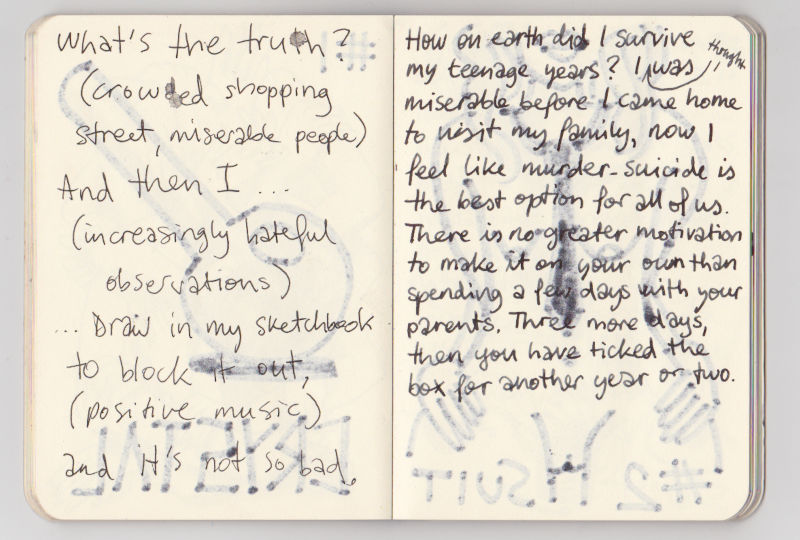 What's the truth?
(crowded shopping
street, miserable people)
And then I ...
(increasingly hateful
observations)
... Draw in my sketchbook
to block it out,
(positive music)
and it's not so bad.
How on earth did I survive
my teenage years? I thought I was
miserable before I came home
to visit my family, now I
feel like murder-suicide is
the best option for all of us.
There is no greater motivation
to make it on your own than
spending a few days with your
parents. Three more days,
then you have ticked the
box for another year or two.
#1
CRYSTAL
#2
SUIT